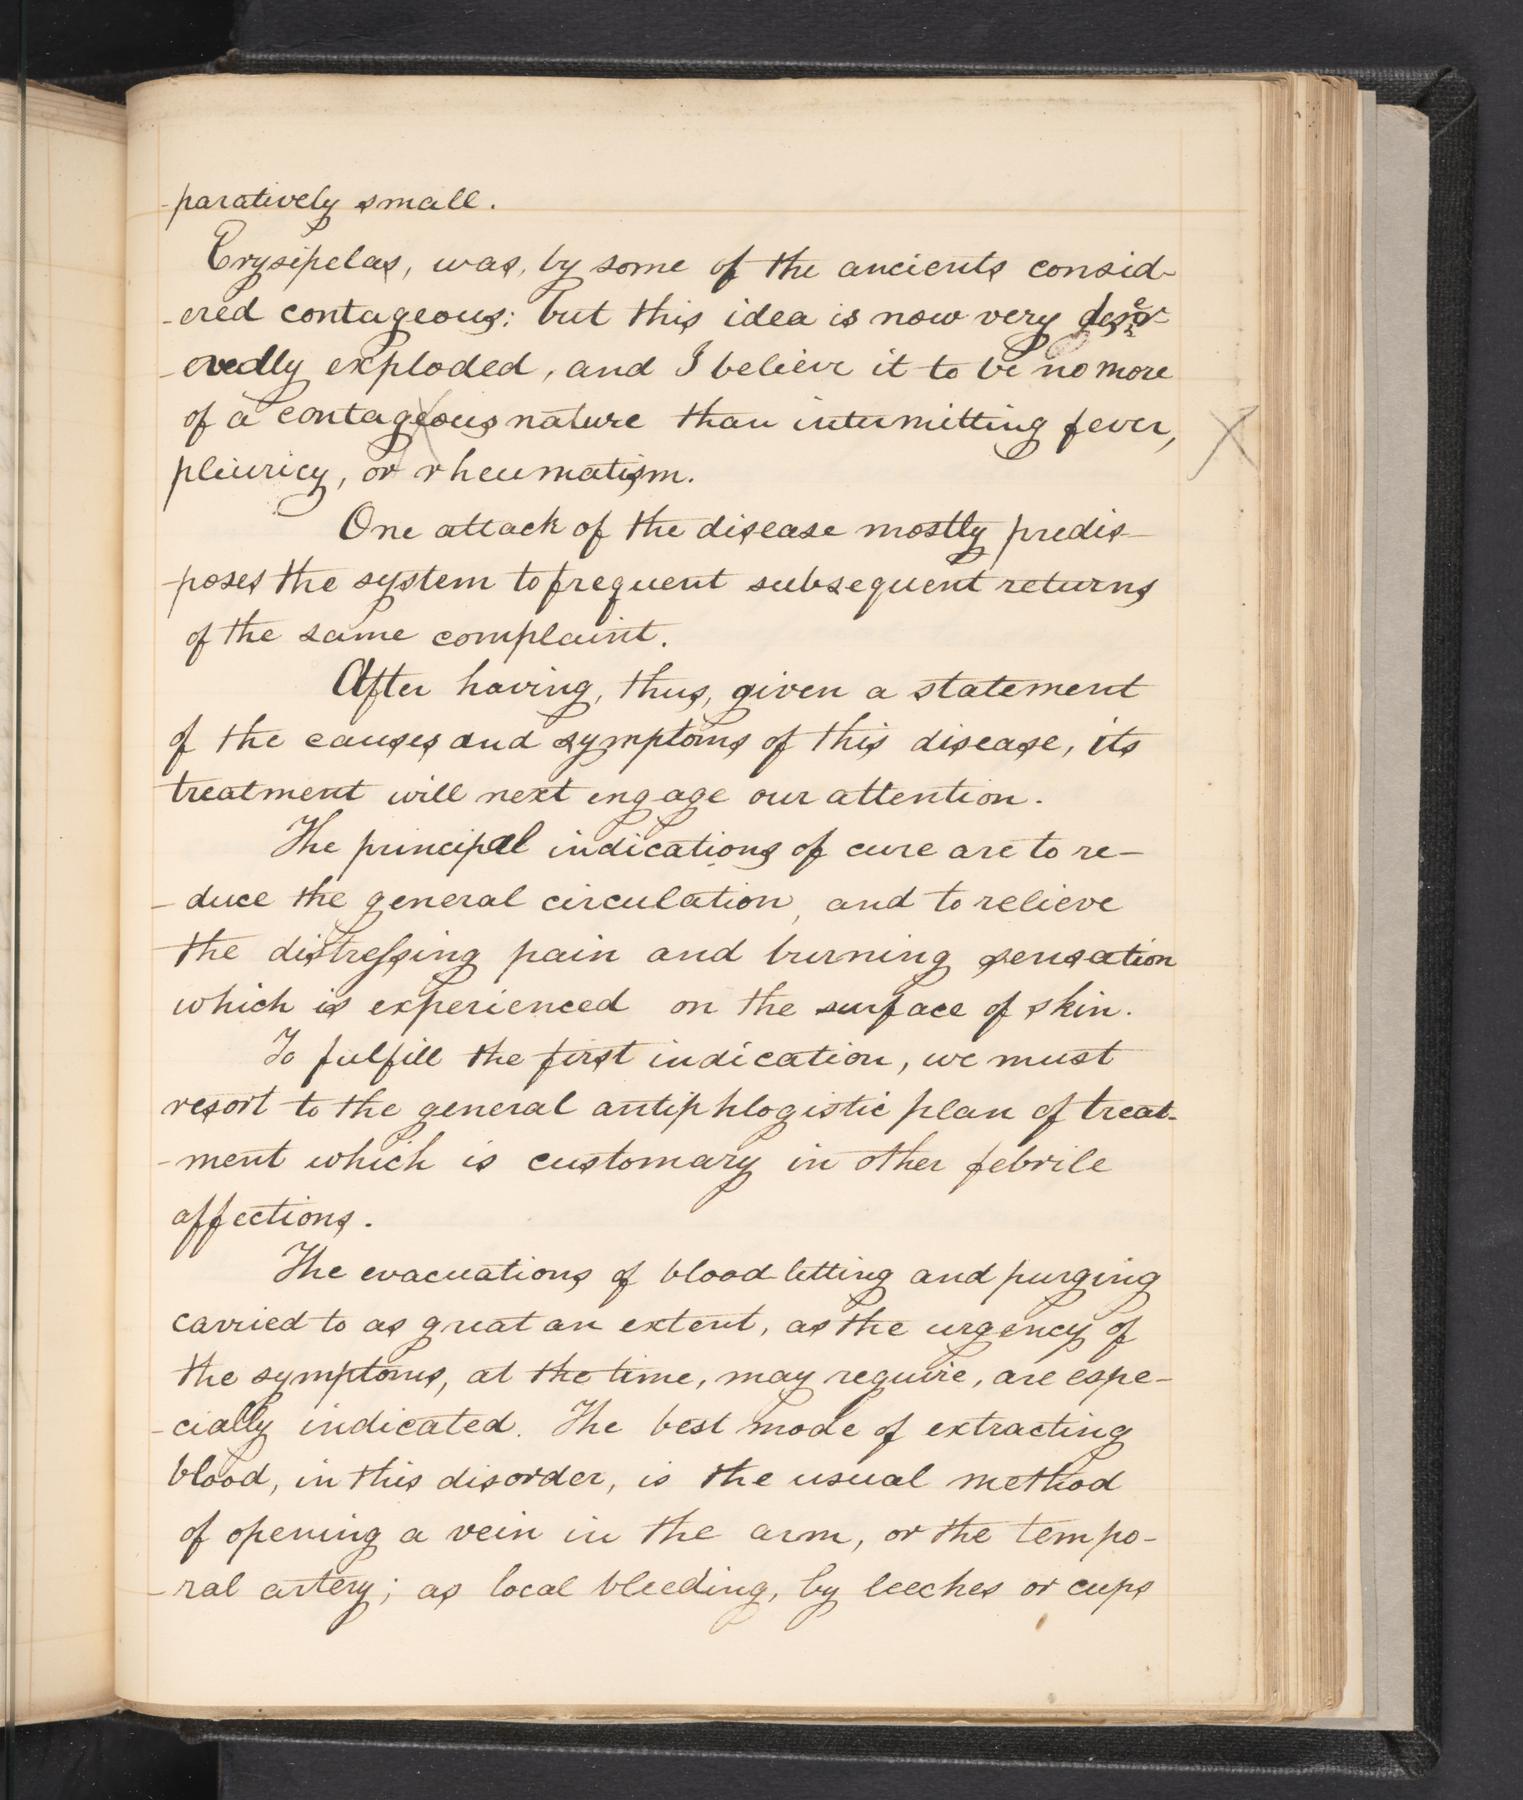 -paratively small.
Erysipelas, was, by some of the ancients consid-
-ered contageous; but this idea is now very deser-
-vedly exploded, and I believe it to be no more
of a contageous nature than intermitting fever,
pleuricy, or rheumatism.
One attack of the disease mostly predis-
-poses the system to frequent subsequent returns
of the same complaint.
After having, thus, given a statement
of the causes and symptoms of this disease, its
treatment will next engage our attention.
The principal indications of cure are to re-
-duce the general circulation, and to relieve
the distressing pain and burning sensation
which is experienced on the surface of skin.
To fulfill the first indication, we must
resort to the general antiphlogistic plan of treat-
-ment which is customary in other febrile
affections.
The evacuations of blood-letting and purging
carried to as great an extent, as the urgency of
the symptoms, at the time, may require, are espe-
-cially indicated. The best mode of extracting
blood, in this disorder, is the usual method
of opening a vein in the arm, or the tempo-
-ral artery; as local bleeding, by leeches or cups